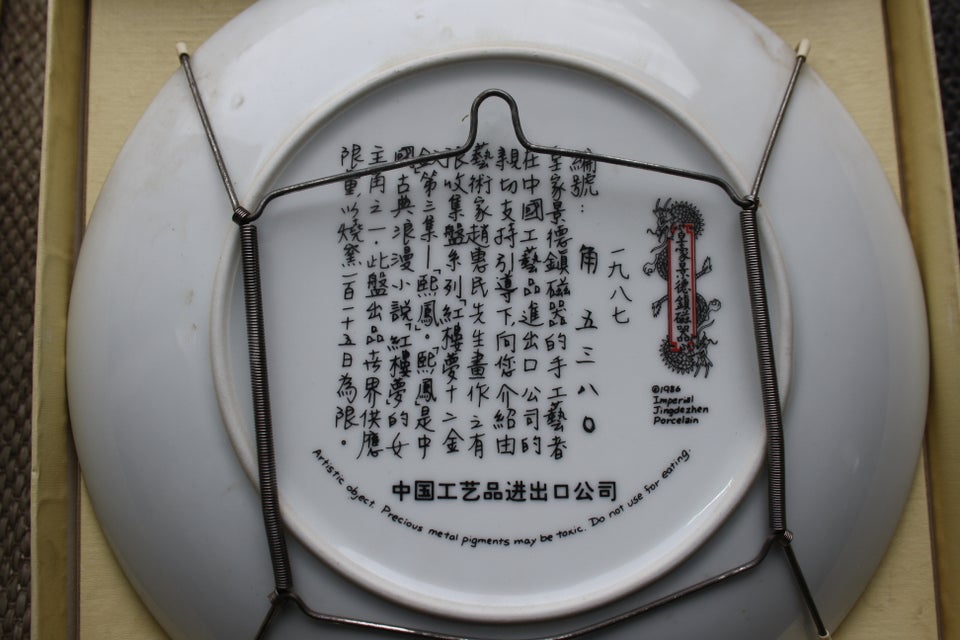 皇家景德鎮磁器
©1986
Imperial
Jingdezhen
Porcelain
一九八七
編號: 角五三八〇
皇家景德鎮磁器的手工藝者
在中國工藝品進出口公司的
親切支持引導下,向您介紹由
藝術家趙惠民先生畫作之有
限收集盤系列「紅樓夢十二金
釵」第三集—「熙鳳」。「熙鳳」是中
國古典浪漫小說「紅樓夢」的女
主角之一.此盤出品世界供應
限量,以燒窯一百一十五日為限。
中国工艺品进出口公司
Artistic object. Precious metal pigments may be toxic. Do not use for eating.